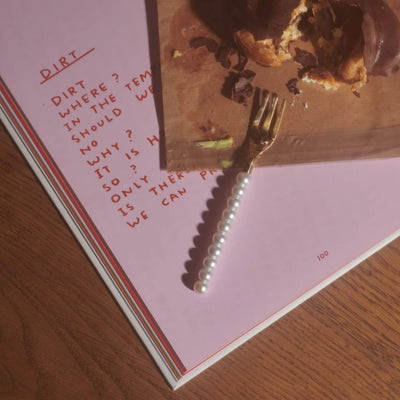 DIRT
DIRT
WHERE?
IN THE TEM
SHOULD WE
NO
WHY?
IT IS H
SO?
ONLY
IS THER
WE CAN
100